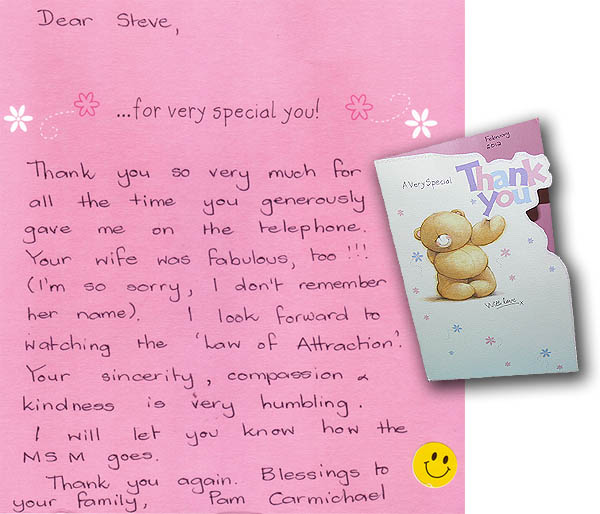 Dear Steve,
...for very special you!
Thank you so very much for
all the time you generously
gave me on the telephone.
Your wife was fabulous, too!!!
(I'm so sorry, I don't remember
her name). I look forward to
watching the 'Law of Attraction'.
Your sincerity, compassion &
kindness is very humbling.
I will let you know how the
MSM goes.
Thank you again. Blessings to
your family, Pam Carmichael
February
2012
A Very Special
Thank
you
With Love x